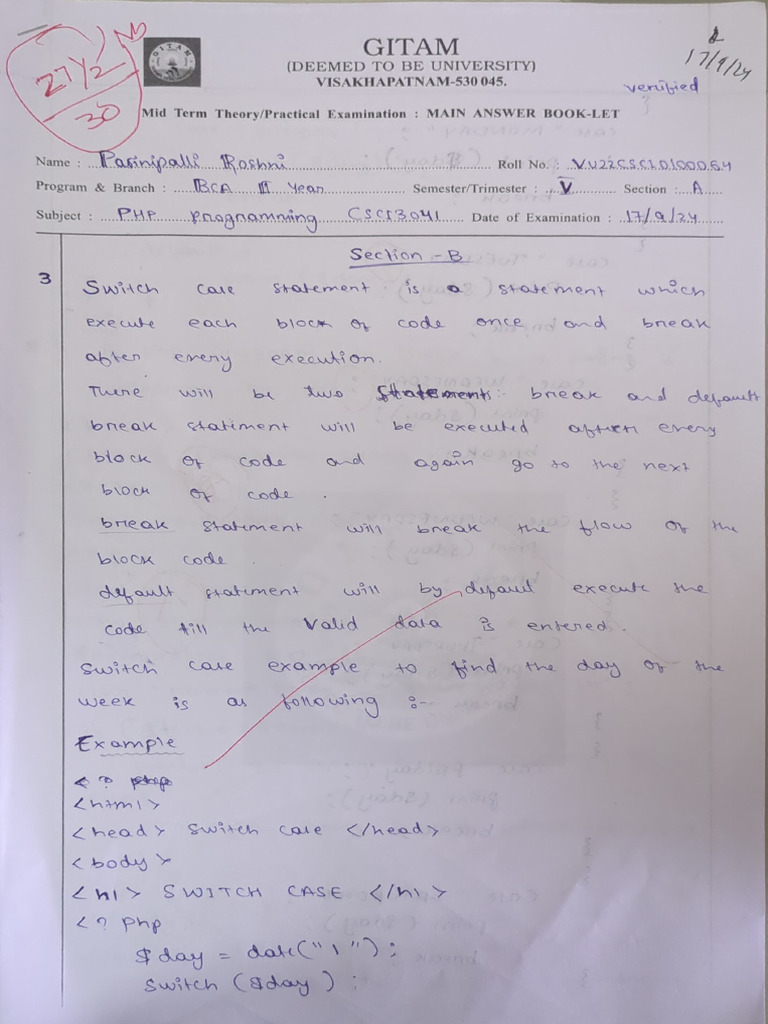 27 1/2
30
GITAM
GITAM
(DEEMED TO BE UNIVERSITY)
VISAKHAPATNAM-530 045.
17/9/24
verified
Mid Term Theory/Practical Examination : MAIN ANSWER BOOK-LET
Name : Parinipalli Roshni Roll No. VU22CSCI0100064
Program & Branch : BCA III Year Semester/Trimester : V Section : A
Subject : PHP programming CSCI3041 Date of Examination : 17/9/24
Section - B
3 Switch case statement is a statement which
execute each block of code once and break
after every execution.
There will be two statements :- break and default
break statiment will be executed after every
block of code and again go to the next
block of code .
break statement will break the flow of the
block code .
default statement will by defaul execute the
code till the valid data is entered.
Switch case example to find the day of the
week is as following :-
Example
< ? php
<html>
<head> switch case </head>
<body>
<h1> SWITCH CASE </h1>
< ? php
$day = date("l");
switch ($day) :